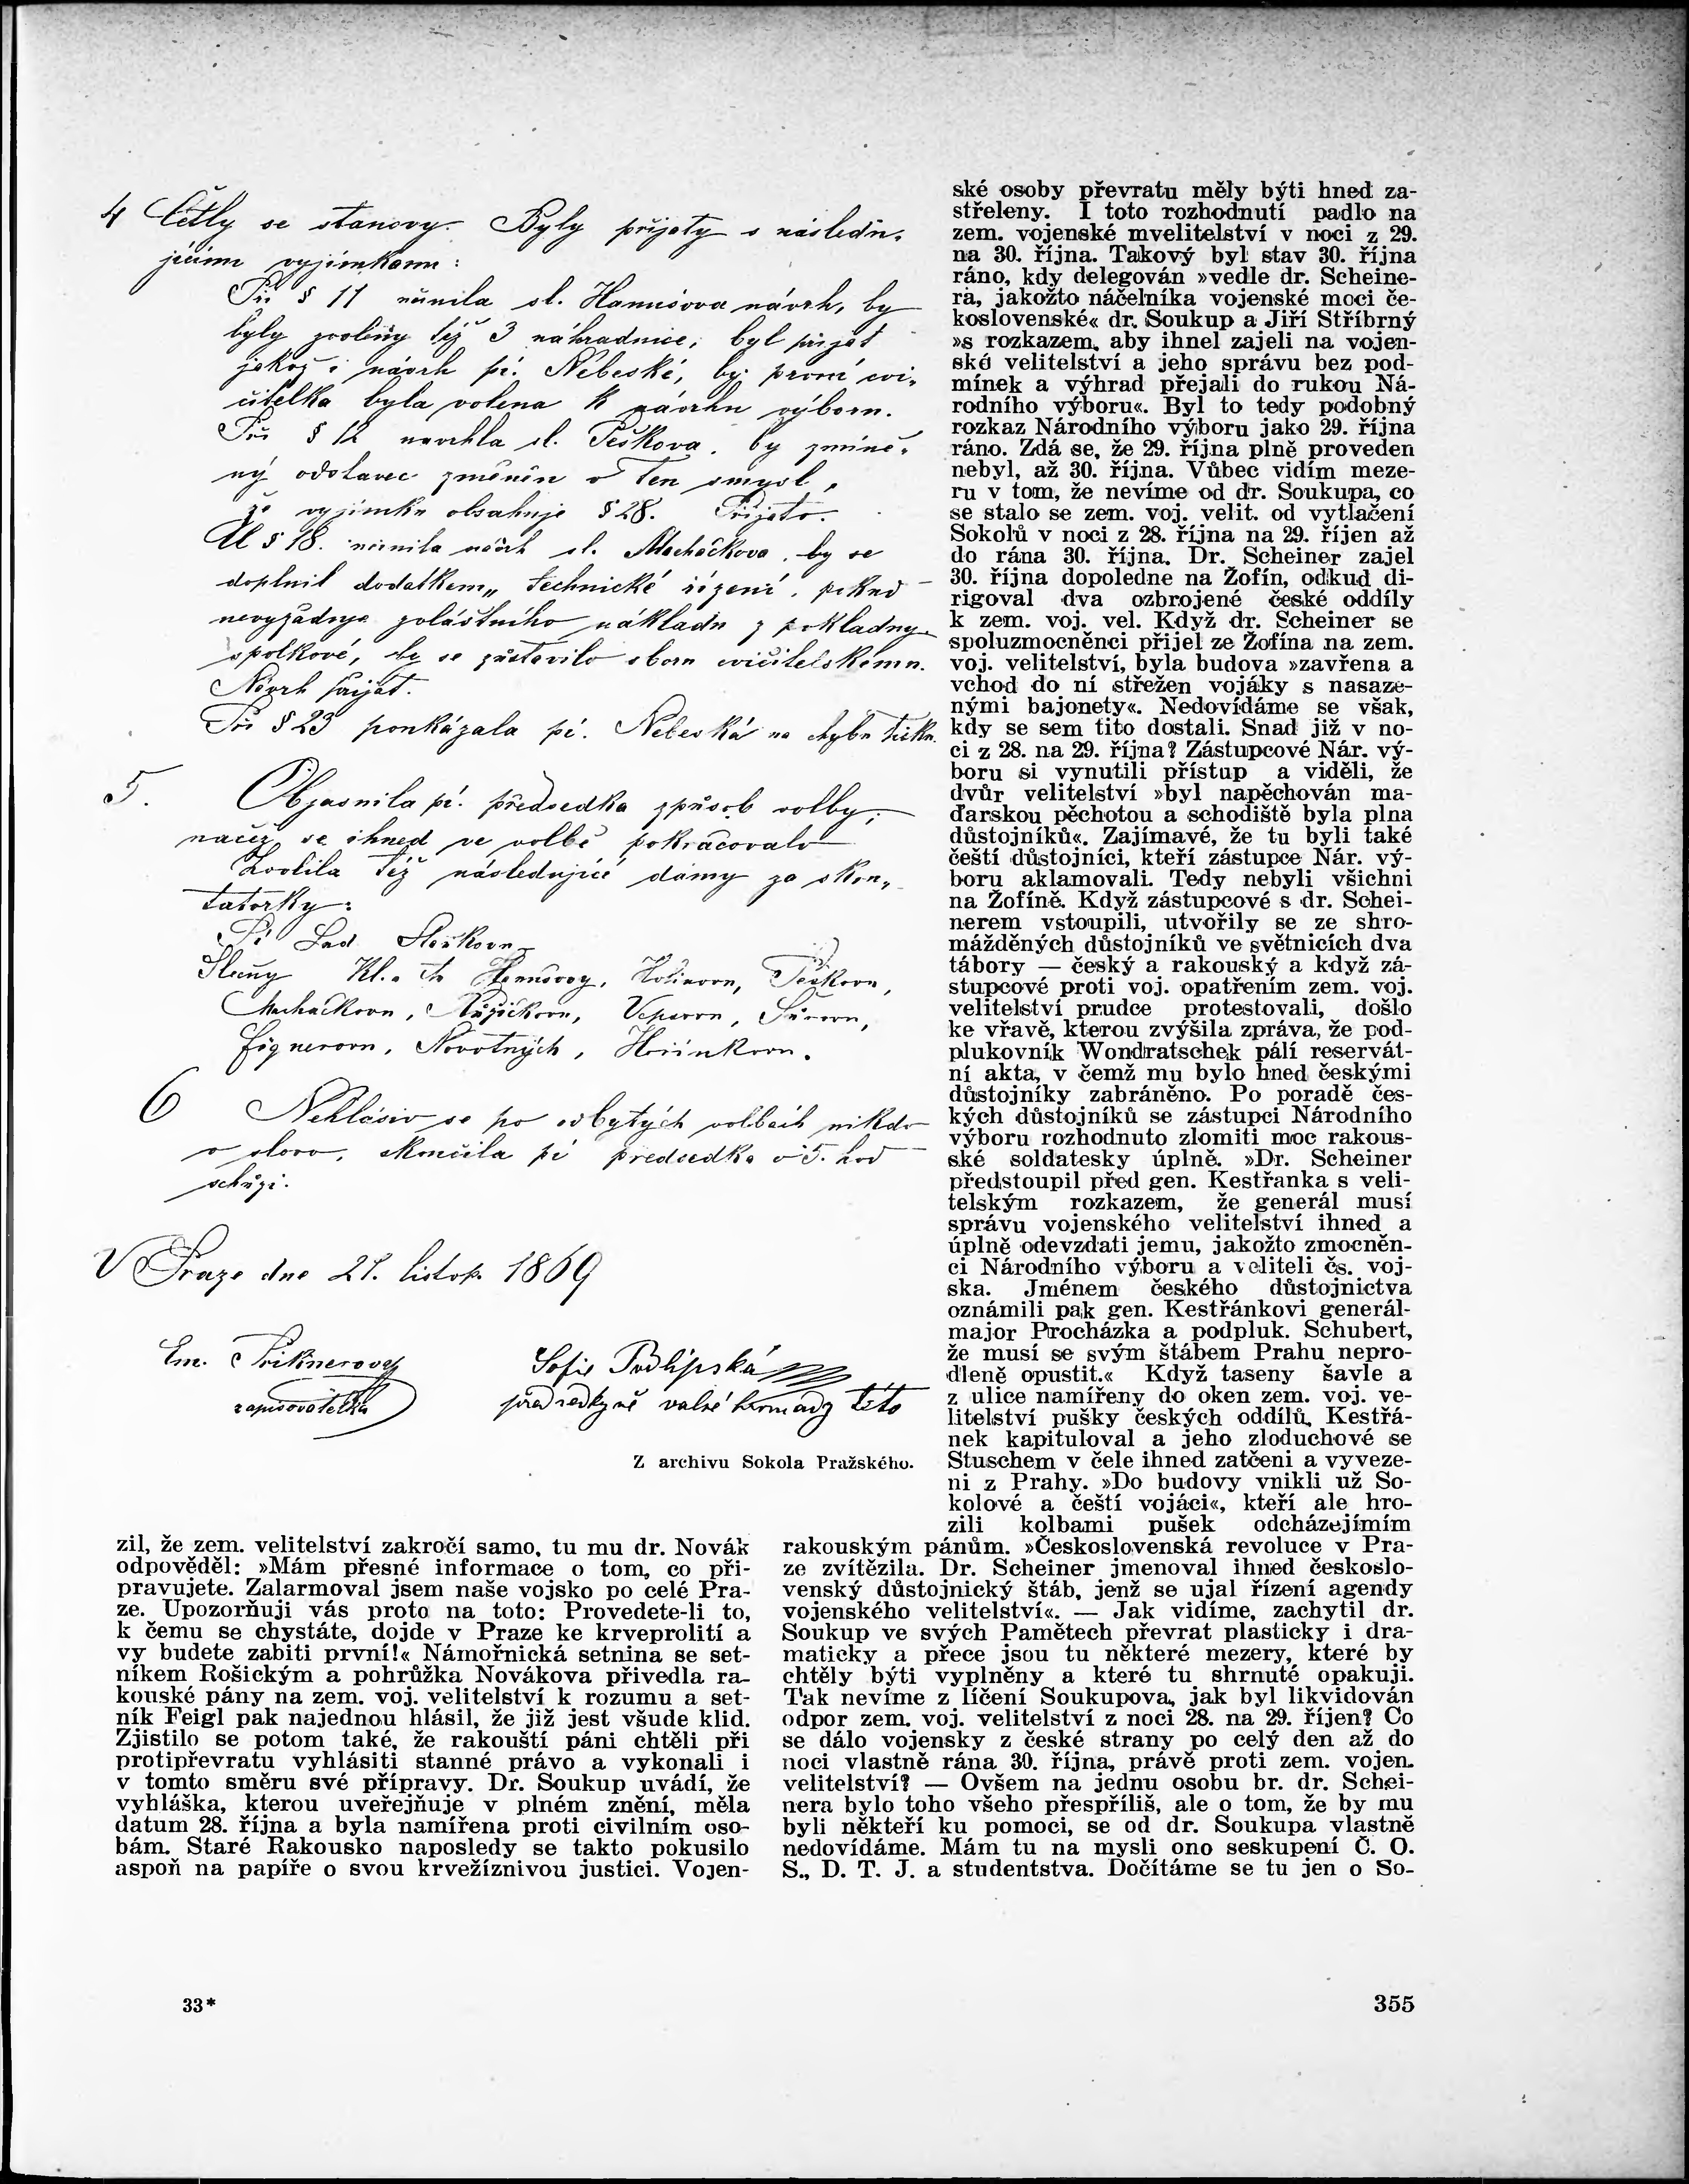 4 Četly se stanovy. Byly přijaty s následu-
jícími vyjímkami:
Při § 11 učinila sl. Hanušova návrh, by
byly zvoleny též 3 náhradnice; byl přijat
jakož i návrh pí. Nebeské, by první cvi-
čitelka byla volena k návrhu výboru.
Při § 12 navrhla sl. Peškova, by zmíně-
ný odstavec změněn v ten smysl,
že vyjímku obsahuje § 28. Přijato.
U § 18. učinila návrh sl. Macháčkova, by se
doplnil dodatkem „technické řízení, pokud
nevyžaduje zvláštního nákladu z pokladny
spolkové, by se zůstavilo sboru cvičitelskému.
Návrh přijat.
Při § 23 poukázala pí. Nebeská na chybu tisku.
5. Objasnila pí. předsedka způsob volby,
načež se ihned ve volbě pokračovalo
Zvolila též následující dámy za skru-
tatorky:
Pí
Slečny Kl. Hanušovy, Peškovu,
Macháčkovu, Růžičkovu,
Fügnerovu, Novotných,
6 Nehlásiv se po odbytých volbách nikdo
o slovo, skončila pí předsedka o 5. hod
schůzi.
V Praze dne 27. listop. 1869
Em.
zapisovatelka
Sofie Podlipská
předsedkyně valné hromady této
Z archivu Sokola Pražského.
zil, že zem. velitelství zakročí samo, tu mu dr. Novák
odpověděl: »Mám přesné informace o tom, co při-
pravujete. Zalarmoval jsem naše vojsko po celé Pra-
ze. Upozorňuji vás proto na toto: Provedete-li to,
k čemu se chystáte, dojde v Praze ke krveprolití a
vy budete zabiti první!« Námořnická setnina se set-
níkem Rošickým a pohrůžka Novákova přivedla ra-
kouské pány na zem. voj. velitelství k rozumu a set-
ník Feigl pak najednou hlásil, že již jest všude klid.
Zjistilo se potom také, že rakouští páni chtěli při
protipřevratu vyhlásiti stanné právo a vykonali i
v tomto směru své přípravy. Dr. Soukup uvádí, že
vyhláška, kterou uveřejňuje v plném znění, měla
datum 28. října a byla namířena proti civilním oso-
bám. Staré Rakousko naposledy se takto pokusilo
aspoň na papíře o svou krvežíznivou justici. Vojen-
ské osoby převratu měly býti hned za-
střeleny. I toto rozhodnutí padlo na
zem. vojenské mvelitelství v noci z 29.
na 30. října. Takový byl stav 30. října
ráno, kdy delegován »vedle dr. Scheine-
ra, jakožto náčelníka vojenské moci če-
koslovenské« dr. Soukup a Jiří Stříbrný
»s rozkazem, aby ihnel zajeli na vojen-
ské velitelství a jeho správu bez pod-
mínek a výhrad přejali do rukou Ná-
rodního výboru«. Byl to tedy podobný
rozkaz Národního výboru jako 29. října
ráno. Zdá se, že 29. října plně proveden
nebyl, až 30. října. Vůbec vidím meze-
ru v tom, že nevíme od dr. Soukupa, co
se stalo se zem. voj. velit. od vytlačení
Sokolů v noci z 28. října na 29. říjen až
do rána 30. října. Dr. Scheiner zajel
30. října dopoledne na Žofín, odkud di-
rigoval dva ozbrojené české oddíly
k zem. voj. vel. Když dr. Scheiner se
spoluzmocněnci přijel ze Žofína na zem.
voj. velitelství, byla budova »zavřena a
vchod do ní střežen vojáky s nasaze-
nými bajonety«. Nedovídáme se však,
kdy se sem tito dostali. Snad již v no-
ci z 28. na 29. října? Zástupcové Nár. vý-
boru si vynutili přístup a viděli, že
dvůr velitelství »byl napěchován ma-
ďarskou pěchotou a schodiště byla plna
důstojníků«. Zajímavé, že tu byli také
čeští důstojníci, kteří zástupce Nár. vý-
boru aklamovali. Tedy nebyli všichni
na Žofíně. Když zástupcové s dr. Schei-
nerem vstoupili, utvořily se ze shro-
mážděných důstojníků ve světnicích dva
tábory — český a rakouský a když zá-
stupcové proti voj. opatřením zem. voj.
velitelství prudce protestovali, došlo
ke vřavě, kterou zvýšila zpráva, že pod-
plukovník Wondratschek pálí reservát-
ní akta, v čemž mu bylo hned českými
důstojníky zabráněno. Po poradě čes-
kých důstojníků se zástupci Národního
výboru rozhodnuto zlomiti moc rakous-
ské soldatesky úplně. »Dr. Scheiner
předstoupil před gen. Kestřanka s veli-
telským rozkazem, že generál musí
správu vojenského velitelství ihned a
úplně odevzdati jemu, jakožto zmocněn-
ci Národního výboru a veliteli čs. voj-
ska. Jménem českého důstojnictva
oznámili pak gen. Kestřánkovi generál-
major Procházka a podpluk. Schubert,
že musí se svým štábem Prahu nepro-
dleně opustit.« Když taseny šavle a
z ulice namířeny do oken zem. voj. ve-
litelství pušky českých oddílů, Kestřá-
nek kapituloval a jeho zloduchové se
Stuschem v čele ihned zatčeni a vyveze-
ni z Prahy. »Do budovy vnikli už So-
kolové a čeští vojáci«, kteří ale hro-
zili kolbami pušek odcházejímím
rakouským pánům. »Československá revoluce v Pra-
ze zvítězila. Dr. Scheiner jmenoval ihned českoslo-
venský důstojnický štáb, jenž se ujal řízení agendy
vojenského velitelství«. — Jak vidíme, zachytil dr.
Soukup ve svých Pamětech převrat plasticky i dra-
maticky a přece jsou tu některé mezery, které by
chtěly býti vyplněny a které tu shrnuté opakuji.
Tak nevíme z líčení Soukupova, jak byl likvidován
odpor zem. voj. velitelství z noci 28. na 29. říjen? Co
se dálo vojensky z české strany po celý den až do
noci vlastně rána 30. října, právě proti zem. vojen.
velitelství? — Ovšem na jednu osobu br. dr. Schei-
nera bylo toho všeho přespříliš, ale o tom, že by mu
byli někteří ku pomoci, se od dr. Soukupa vlastně
nedovídáme. Mám tu na mysli ono seskupení Č. O.
S., D. T. J. a studentstva. Dočítáme se tu jen o So-
33*
355